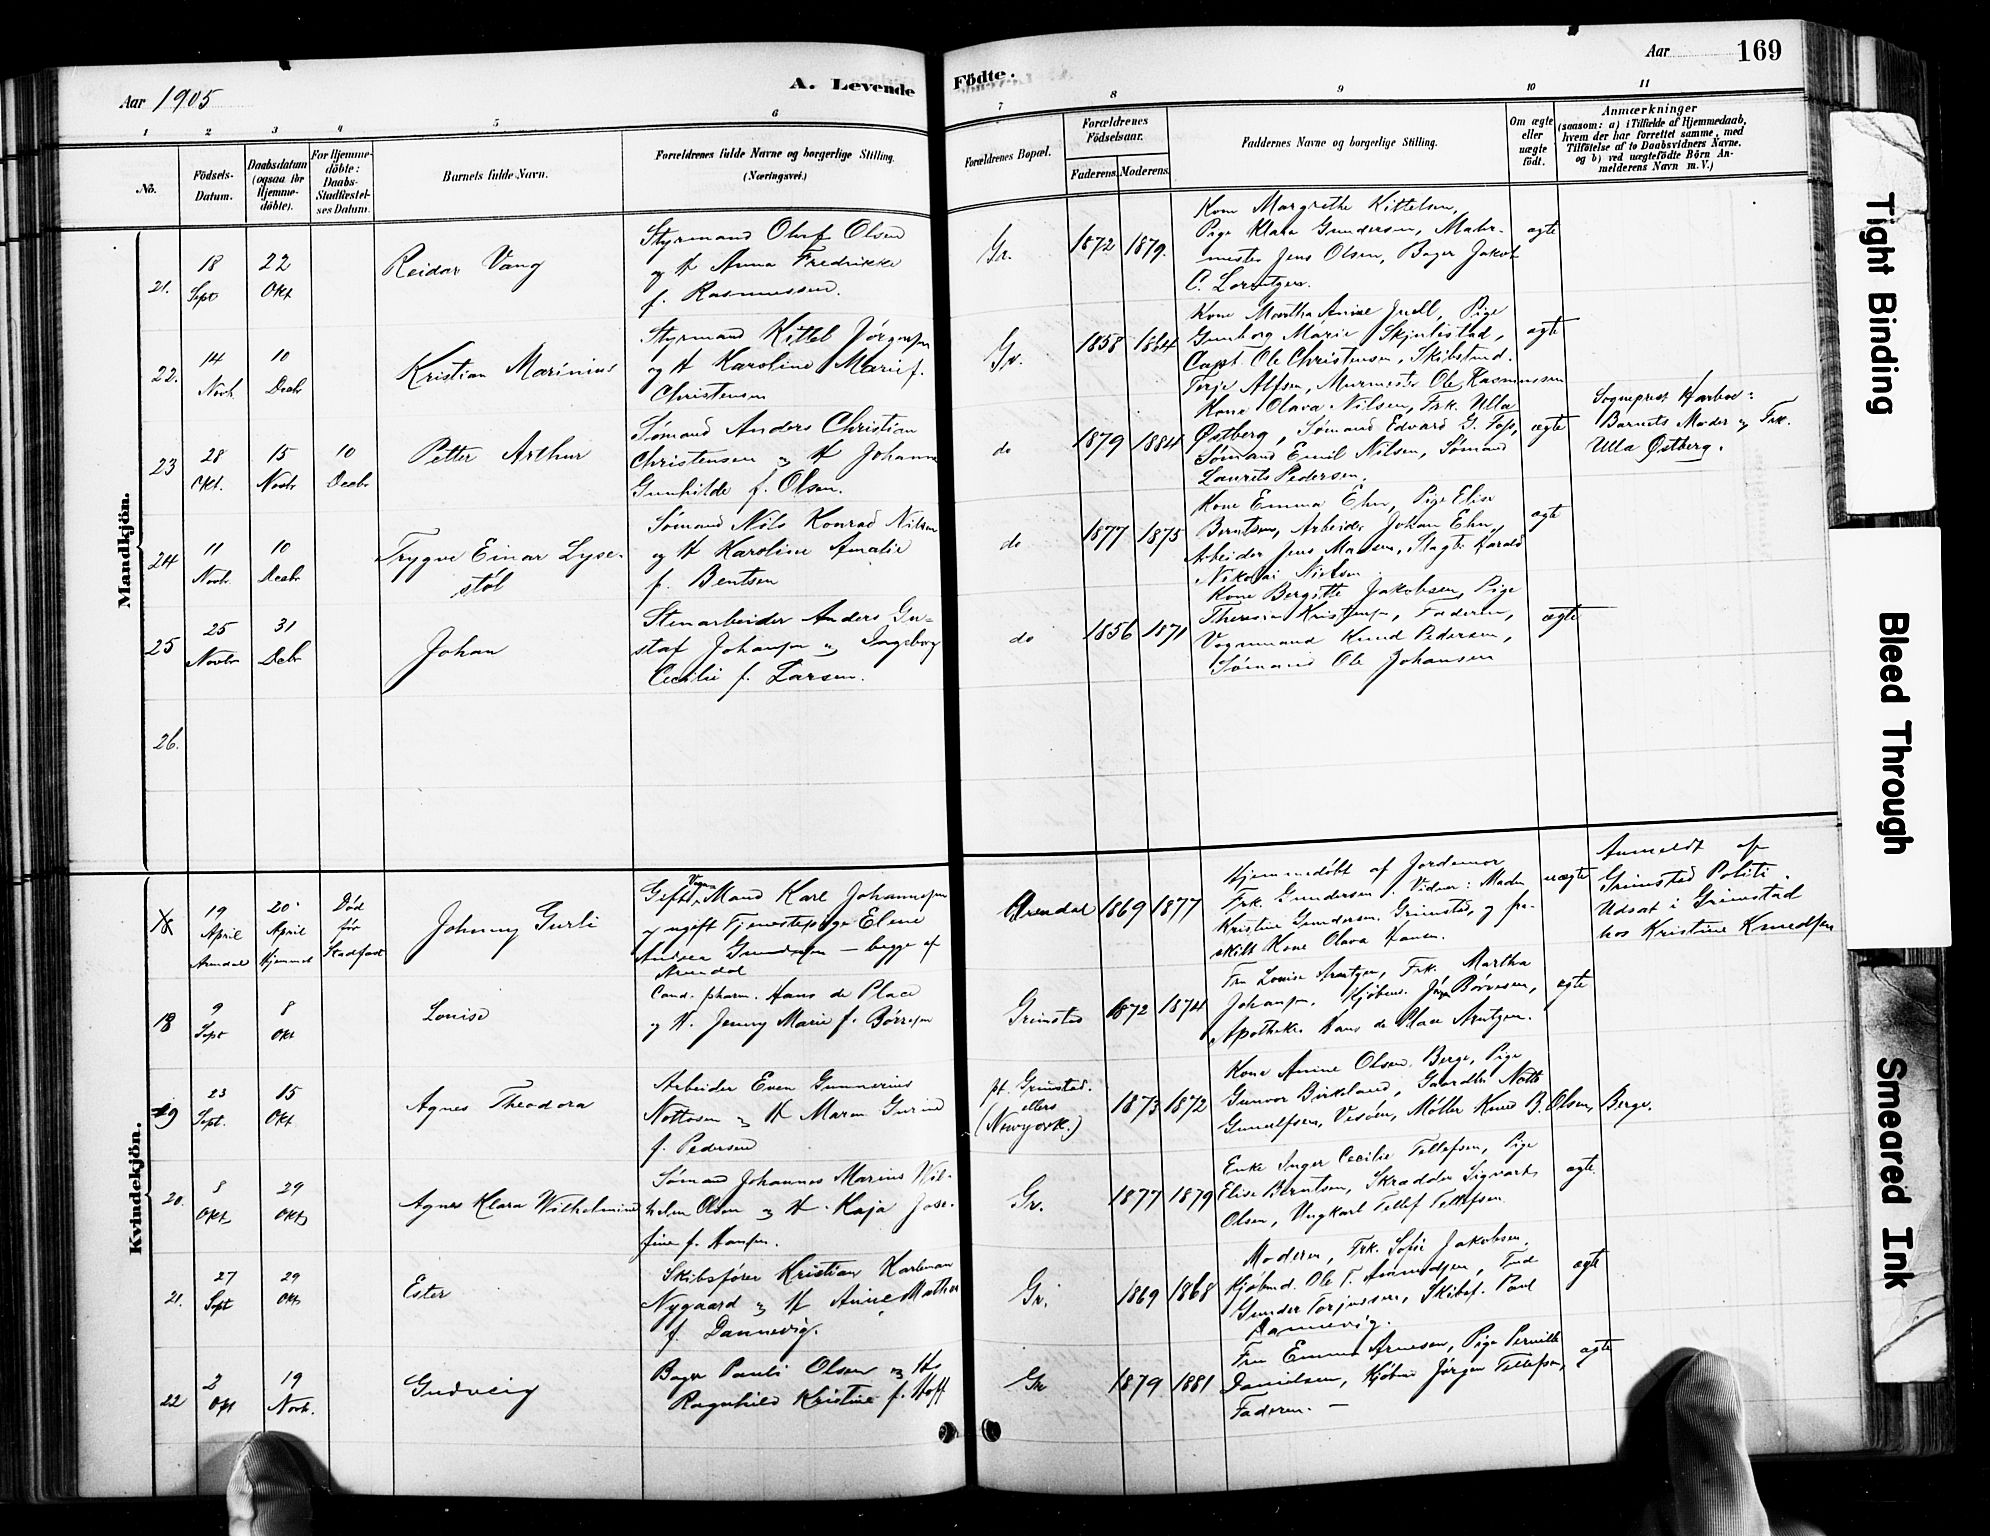 Aar 1905
A. Levende
Födte.
Aar
169
1 2 3 4 5 6 7 8 9 10 11
No.
Födsels-Datum.
Daabsdatum (ogsaa for Hjemme-döbte).
For Hjemme-döbte: Daabs-Stadfæstel-ses Datum.
Barnets fulde Navn.
Forældrenes fulde Navne og borgerlige Stilling.
(Næringsvei.)
Forældrenes Bopæl.
Forældrenes Födselsaar.
Faderens. Moderens.
Faddernes Navne og borgerlige Stilling.
Om ægte eller uægte födt.
Anmærkninger
(saasom: a) i Tilfælde af Hjemmedaab,
hvem der har forrettet samme, med
Tilföielse af to Daabsvidners Navne,
og b) ved uægtefödte Börn An-
melderens Navn m. V.)
Mandkjön.
21.
18 Sept
22 Okt
Reidar Vang
Styrmand Oluf Olsen
og H Anna Fredrikke
f. Rasmussen.
Gr.
1872
1879.
Kone Margrethe Kittelsen,
Pige Klara Gundersen, Maler-
mester Jens Olsen, Bager Jakob
C. Lorentzen.
ægte
22.
14 Novb.
10 Decbr
Kristian Marinius
Styrmand Kittel Jørgensen
og H Karoline Marie f.
Christensen
Gr.
1858
1864
Kone Martha Anine Juell, Pige
Gunborg Marie
Capt. Ole Christensen, Skibstmd.
Terje Alfsen, Murmester Ole Rasmussen
ægte
23
28 Okt.
15 Novbr
10 Decbr
Petter Arthur
Sømand Anders Christian
Christensen og H Johanne
Gunhilde f. Olsen.
do
1879
1884
Kone Olava Nilsen, Frk. Ulla
Østberg, Sømand Edvard G. Foss,
Sømand Emil Nilsen, Sømand
Laurits Pedersen.
ægte
Sogneprest Harboe:
Barnets Moder og Frk.
Ulla Østberg.
24
11 Novbr.
10 Decbr
Trygve Einar Lyse-
støl
Sømand Nils Konrad Nilsen
og H Karoline Amalie
f. Bentsen
do
1877
1875
Kone Emma Ehn, Pige Elise
Berntsen, Arbeider Johan Ehn,
Arbeider Jens Madsen, Slagter Harald
Nikolai Nielsen
ægte
25
25 Novbr
31 Decbr
Johan
Stenarbeider Anders Gu-
staf Johansen og Ingeborg
Cecilie f. Larsen.
do
1856
1871
Kone Bergitte Jakobsen, Pige
Theresia Kristensen, Faderen,
Vognmand Knud Pedersen,
Sømand Ole Johansen
ægte
26.
Kvindekjön.
19 April Arendal
20 April Hjemmet
Død før Stadfæst
Johnny Gurli
Gift Vognmand Karl Johannesen
og ugift Tjenestepige Eline
Andrea Gundersen — begge af
Arendal
Arendal
1869
1877
Hjemmedøbt af Jordemor
Frk. Gundersen. Vidner: Madam
Kristine Gundersen Grimstad, og fra-
skilt Kone Olava Hansen.
uægte
Anmeldt af
Grimstad Politi.
Udsat i Grimstad
hos Kristine Knudsen
18
9 Sept
8 Okt
Louise
Cand. pharm. Hans de Place
og H. Jenny Marie f. Børresen
Grimstad
1872
1874
Fru Louise Arntzen, Frk. Martha
Johansen, Kjøbm. Børresen,
Apotheker Hans de Place Arntzen.
ægte
19
23 Sept.
15 Okt
Agnes Theodora
Arbeider Even Gunnerius
Nottosen og H Maren Gurine
f. Pedersen
pt. Grimstad.
ellers
(Newyork.)
1873
1872
Kone Anine Olsen Berge, Pige
Gunvor Birkeland, Gaardbr Notto
Gunulfsen, Vesøen, Møller Knud B. Olsen, Berge.
20.
8 Okt
29 Okt
Agnes Klara Wilhelmine
Sømand Johannes Marius Wil-
helm Olsen og H. Kaja Jose-
fine f. Hansen.
Gr.
1877
1879
Enke Inger Cecilie Tellefsen, Pige
Elise Berntsen, Skrædder Sigvart
Olsen, Ungkarl Tellef Tellefsen
ægte.
21.
27 Sept
29 Okt
Ester
Skibsfører Kristian Karleman
Nygaard og H Anine Mathea
f. Dannevig.
Gr.
1869
1868
Moderen, Frk. Sofie Jakobsen,
Kjøbmd. Ole T. Amundsen,
Gunder Torjussen, Skibsf. Paul
Dannevig.
ægte
22
2 Okt
19 Novb.
Gudveig
Bager Pauli Olsen og Hs
Ragnhild Kristine f. Hoff
Gr
1879
1881
Fru Emma Arnesen, Pige Pernille
Danielsen, Kjøbm Jørgen Tellefsen,
Faderen. —
ægte
Tight Binding
Bleed Through
Smeared Ink